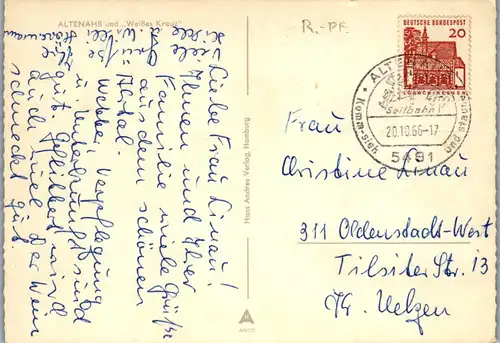 ALTENAHR und „Weißes Kreuz"
R.-PF.
DEUTSCHE BUNDESPOST
20
LORSCH · HESSEN
ALTE
Seilbahn
20.10.66-17
5481
und staune
Liebe Frau Linau!
Ihnen und Ihrer
Familie viele Grüße
aus dem schönen
Ahrtal.
Wetter, Verpflegung
u. Unterkunft sind
gut. Gefilbert wird
auch. Und der Wein
schmeckt gut.
Viele
Grüße
Hans Andres Verlag, Hamburg
A
AN
Frau
Christine Linau
311 Oldenstadt-West
Tilsiter Str. 13
Kr. Uelzen